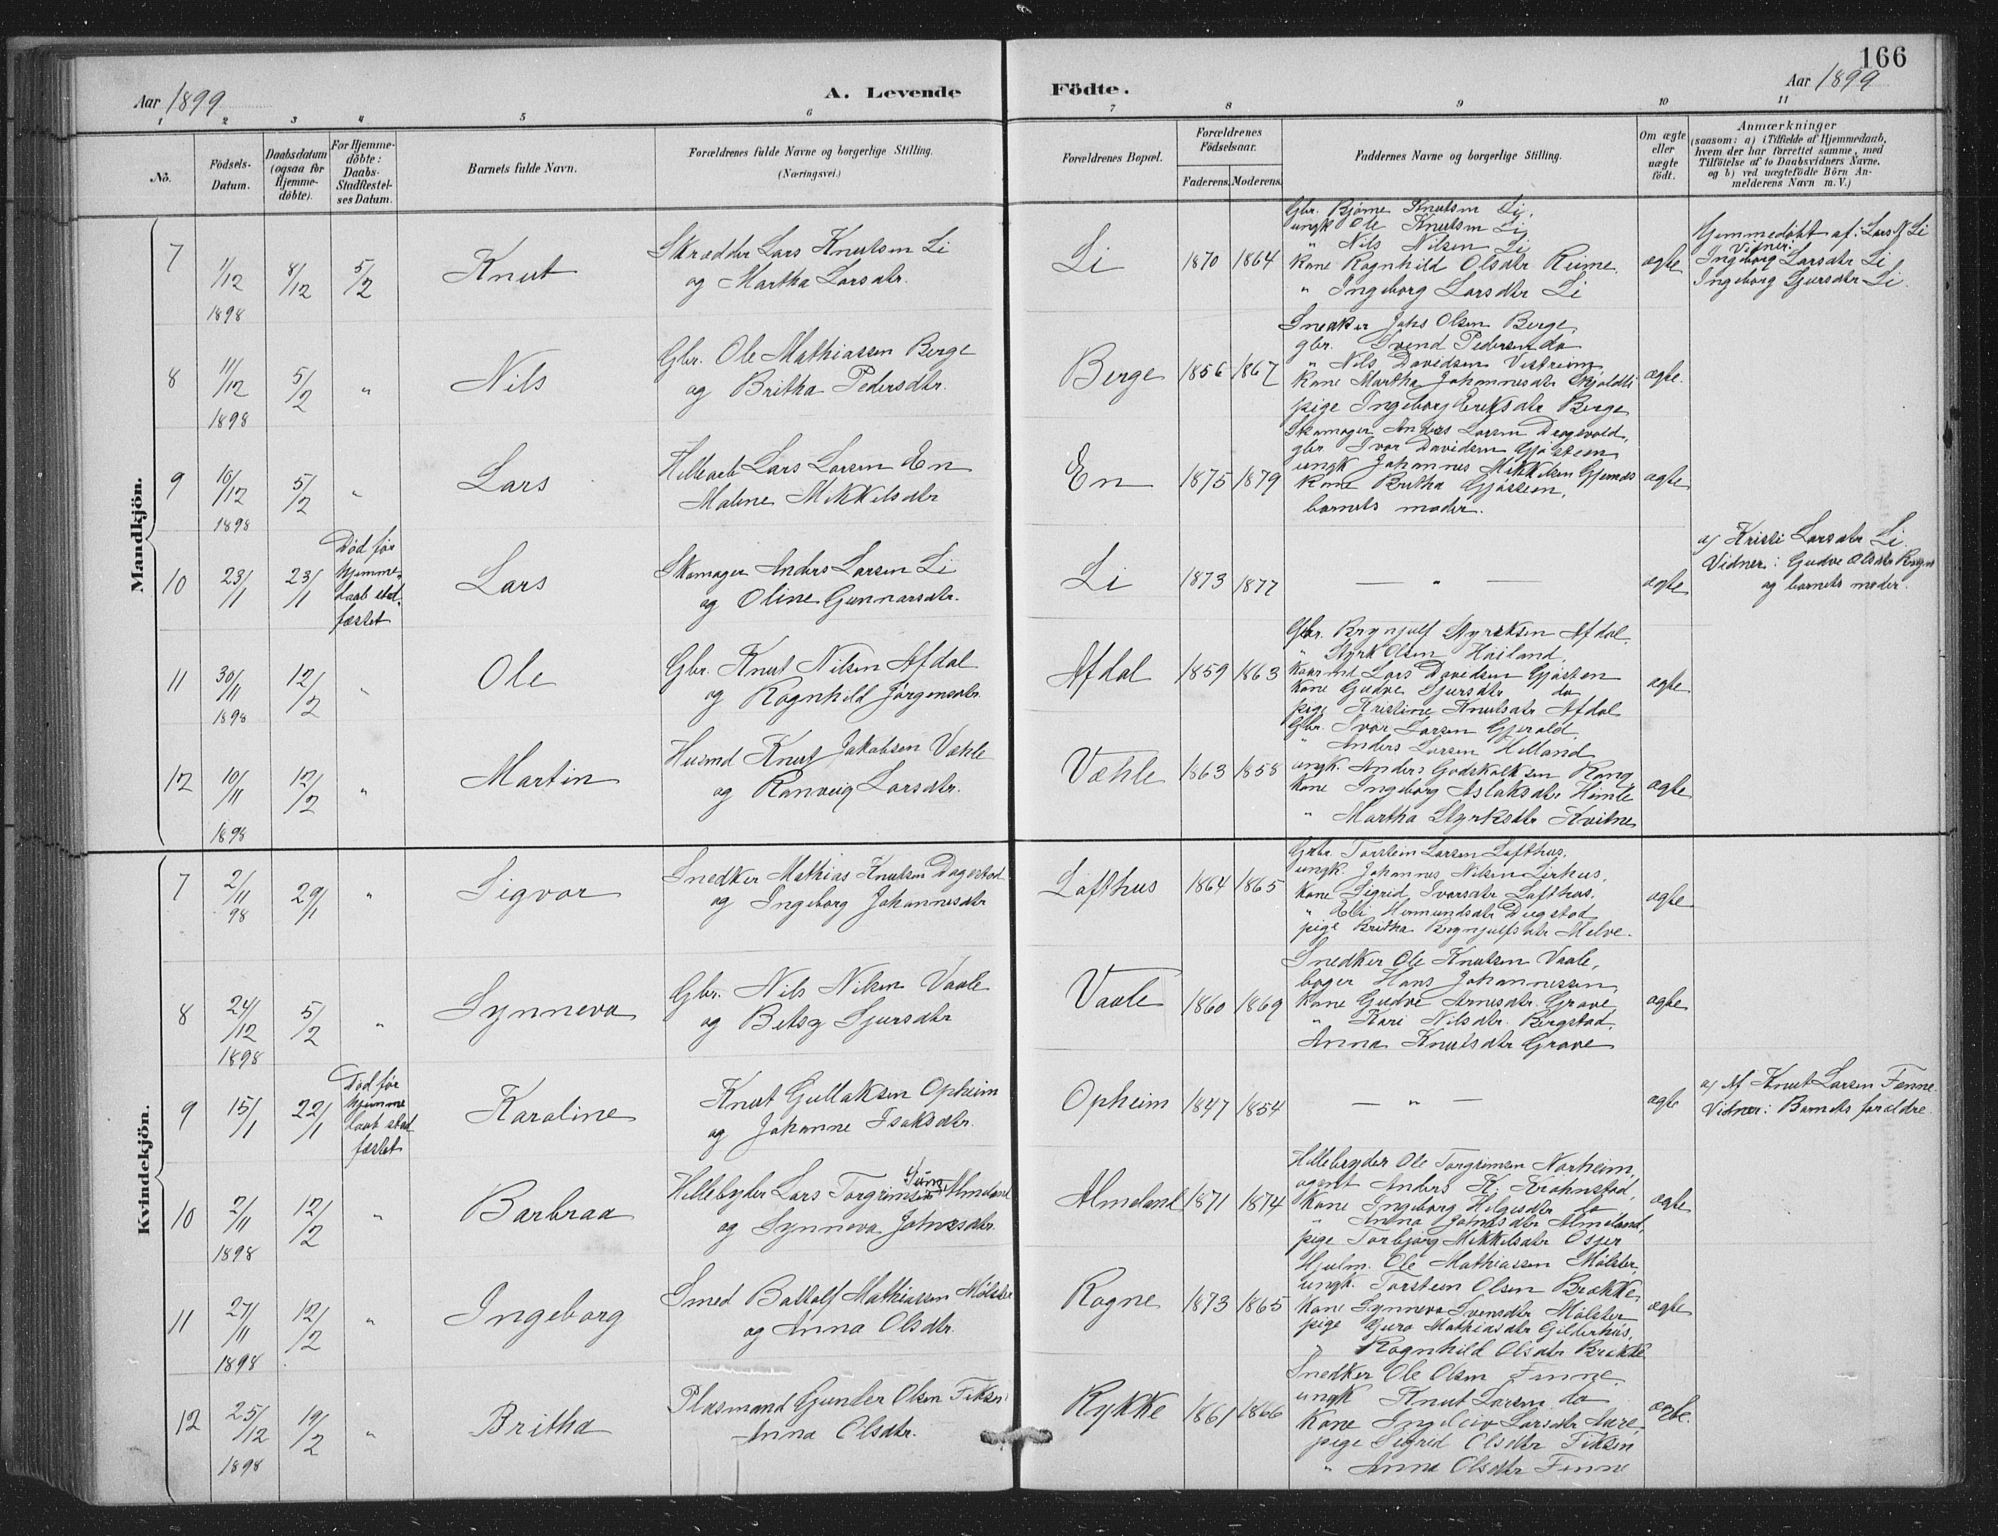 166
Aar 1899
A. Levende
Födte.
Aar 1899
1 2 3 4 5 6 7 8 9 10 11
No.
Födsels-
Datum.
Daabsdatum
(ogsaa for
Hjemme-
döbte).
For Hjemme-
döbte:
Daabs-
Stadfæstel-
ses Datum.
Barnets fulde Navn.
Forældrenes fulde Navne og borgerlige Stilling.
(Næringsvei.)
Forældrenes Bopæl.
Forældrenes
Födselsaar.
Faderens.
Moderens.
Faddernes Navne og borgerlige Stilling.
Om ægte
eller
uægte
födt.
Anmærkninger
(saasom: a) i Tilfælde af Hjemmedaab,
hvem der har forrettet samme, med
Tilföielse af to Daabsvidners Navne.
og b) ved uægtefödte Börn An-
melderens Navn m. V.)
Mandkjön.
7
1/12
1898
8/12
5/2
Knut
Skrædder Lars Knutsen Li
og Martha Larsdtr.
Li
1870
1864
Gbr. Bjørne Knutsen Li,
ungk Ole Knutsen Li
" Nils Nilsen Li
Kone Ragnhild Olsdtr Reime.
" Ingeborg Larsdtr Li
ægte
Hjemmedøbt af: Lars N Li
Vidner:
Ingeborg Larsdtr Li
Ingeborg Sjursdtr Li.
8
11/12
1898
5/2
"
Nils
Gbr. Ole Mathiassen Berge
og Britha Pedersdtr.
Berge
1856
1867
Snedker Johs Olsen Berge
gbr. Svend Pedersen do
" Nils Davidsen Vestreim
Kone Martha Johannesdtr Skjoldli
pige Ingeborg Eriksdtr Berge
ægte.
9
10/12
1898
5/2
"
Lars
Hillearb Lars Larsen En
Malene Mikkelsdtr
En
1875
1879
Skomager Anders Larsen Dragevold,
gbr Ivar Davidsen Gjøstein
ungk Johannes Mikkelsen Gjernæs
Kone Britha Gjøstein,
barnets moder.
ægte
10
23/1
23/1
Død før
hjemme-
daab stad-
fæstet
Lars
Skomager Anders Larsen Li
og Oline Gunnarsdtr.
Li
1873
1877
— " —
ægte
a) Kristi Larsdtr Li.
Vidner: Gudve Olsdtr Rogne
og barnets moder.
11
30/11
1898
12/2
"
Ole
Gbr. Knut Nilsen Afdal
og Ragnhild Jørgensdtr.
Afdal
1859
1863
Gbr. Brynjulf Styrksen Afdal
" Styrk Olsen Høiland,
Kaarmd Lars Davidsen Gjøsten
Kone Gudve Sjursdtr do
pige Kristine Knutsdtr Afdal
ægte
12
10/11
1898
12/2
"
Martin
Husmd Knut Jakobsen Væhle
og Ranveig Larsdtr.
Væhle
1863
1858
Gbr. Ivar Larsen Gjerald,
" Anders Larsen Helland
ungk. Anders Godskalksen Rang
Kone Ingeborg Aslaksdtr Himle
" Martha Styrksdtr Kvitne
ægte
Kvindekjön.
7
2/11
98
29/1
"
Sigvor
Snedker Mathias Knutsen Dagestad
og Ingeborg Johannesdtr
Lofthus
1864
1865
Gbr. Torstein Larsen Lofthus,
ungk. Johannes Nilsen Lirhus,
Kone Sigrid Ivarsdtr Lofthus.
" Eli Hermundsdtr Dugstad
pige Britha Brynjulfsdtr Melve.
ægte
8
24/12
1898
5/2
"
Synneva
Gbr. Nils Nilsen Vaale
og Betsy Sjursdtr
Vaale
1860
1869
Snedker Ole Knutsen Vaale,
bager Hans Johannessen
Kone Gudve Arnesdtr. Grove
" Kari Nilsdtr. Bergstad
Anna Knutsdtr Grove
ægte
9
15/1
22/1
Død før
hjemme
daab stad
fæstet
Karoline
Knut Gullaksen Opheim
og Johanne Isaksdtr.
Opheim
1847
1854
— " —
ægte
a) Af Knut Larsen Fenne.
Vidner: Barnets forældre.
10
2/11
1898
12/2
"
Barbraa
Hillebryder Lars Torgrimsen Almeland
og Synneva Johnsdtr.
Almeland
1871
1874
Hillebryder Ole Torgrimsen Norheim,
agent Anders K. Krohnstad,
Kone Ingeborg Helgesdtr do
" Anna Johnsdtr Almeland,
pige Torbjørg Mikkelsdtr
ægte
11
27/11
1898
12/2
"
Ingeborg
Smed Ballolf Mathiassen Mølster
og Anna Olsdtr.
Rogne
1873
1865
Hjulm. Ole Mathiassen Mølster,
ungk. Torstein Olsen Brække
Kone Synneva Svensdtr Mølster
pige Guro Mathiasdtr Gilderhus,
" Ragnhild Olsdtr Brække
ægte
12
25/12
1898
19/2
"
Britha
Plasmand Gunder Olsen Fiksen
Anna Olsdtr.
Rykke
1861
1866
Snedker Ole Olsen Finne
ungk Knut Larsen do
Kone Ingeleiv Larsdtr
pige Sigrid Olsdtr Fiksen
" Anna Olsdtr Finne
ægte.